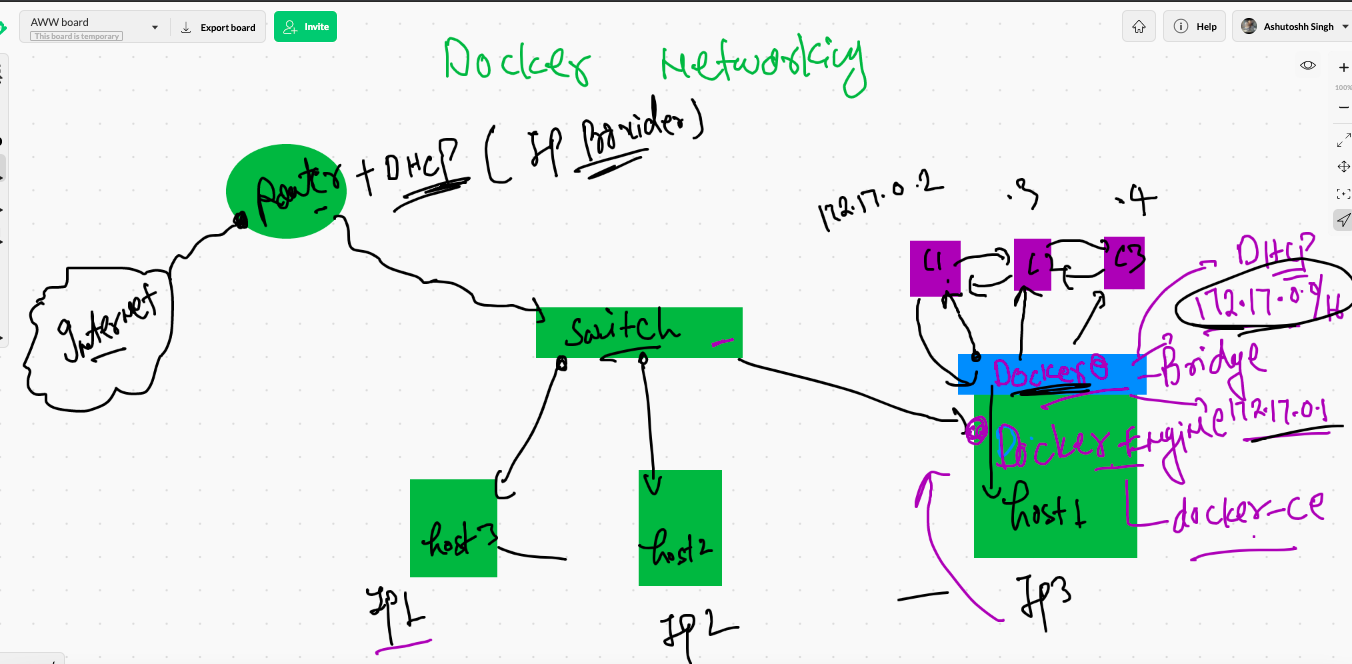 AWW board
This board is temporary
Export board
Invite
Help
Ashutoshh Singh
100%
Docker Networking
Router + DHCP ( IP Provider )
Internet
Switch
172.17.0.2 .3 .4
C1 C C3
DHCP
172.17.0.0/16
Docker0
Bridge
172.17.0.1
Docker Engine
host1
docker-ce
host3
host2
IP1
IP2
IP3